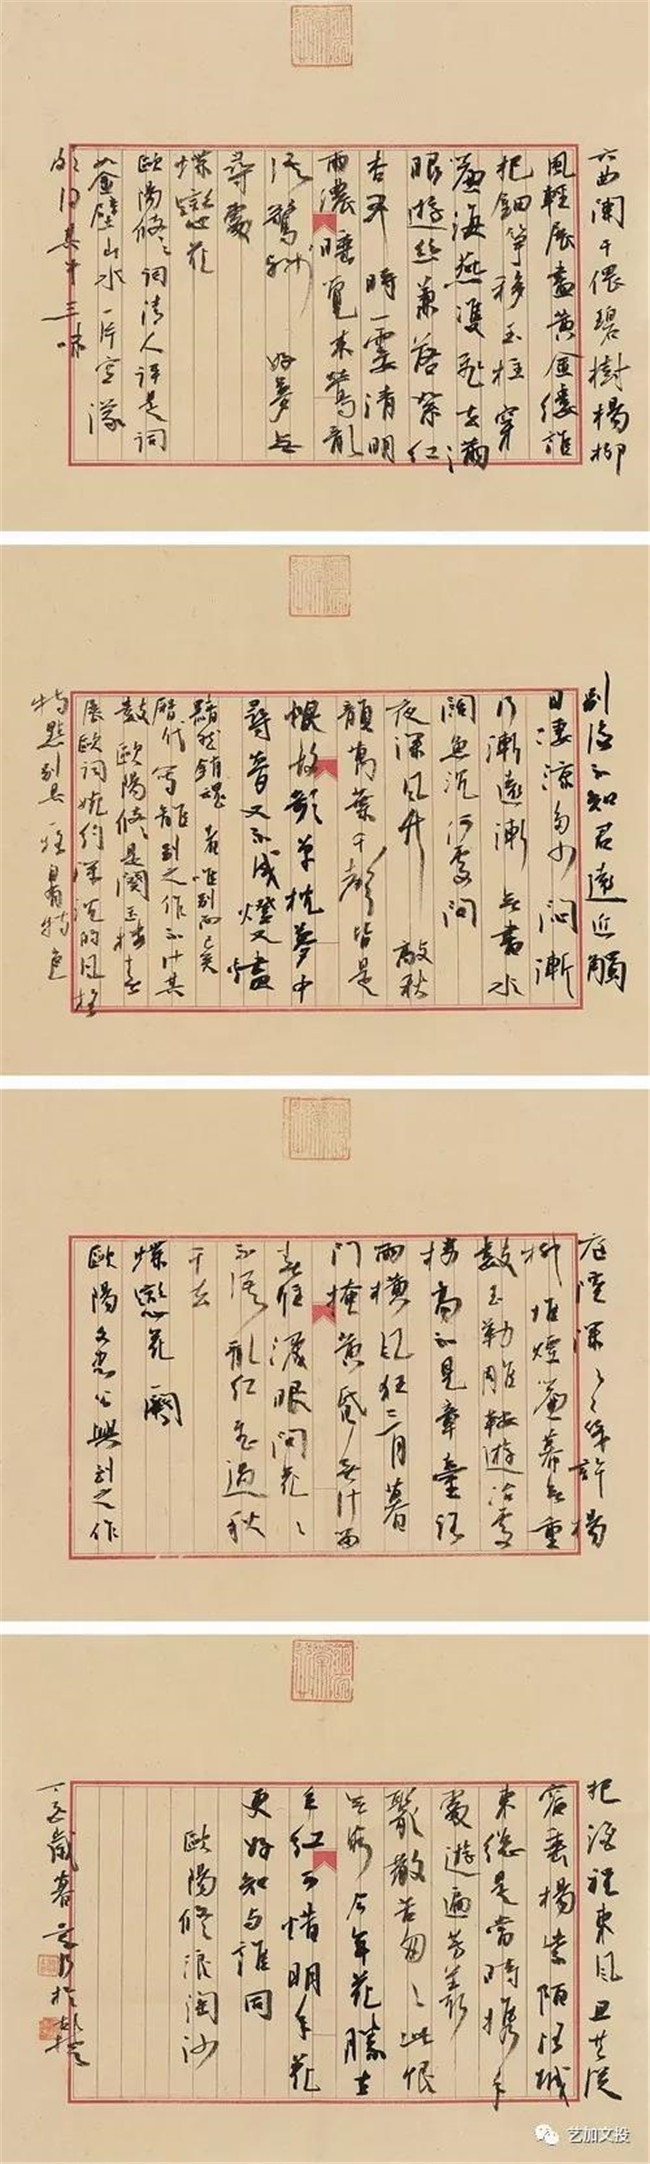 六曲闌干偎碧樹楊柳
風輕展盡黃金縷誰
把鈿箏移玉柱穿
簾海燕雙飛去滿
眼遊絲兼落絮紅
杏開時一霎清明
雨濃睡覺來鶯亂
語驚殘好夢無
尋處
蝶戀花
歐陽修之詞清人評是詞
如金壁山水一片空濛
得其中三味
別後不知君遠近觸
目淒涼多少悶漸
行漸遠漸無書水
闊魚沉何處問
夜深風竹敲秋
韻萬葉千聲皆是
恨故欹單枕夢中
尋又不成燈又燼
黯然銷魂者唯別而已矣
歷代寫離別之作不計其
數歐陽修之是闋玉樓春
展歐詞婉約深沉的風格
特點別具一種特色
庭院深々々幾許楊
柳堆煙簾幕無重
數玉勒雕鞍遊冶處
樓高不見章臺路
雨橫風狂三月暮
門掩黃昏無計留
春住淚眼問花々
不語亂紅飛過秋
千去
蝶戀花一闋
歐陽文忠公興到之作
把酒祝東風且共從
容垂楊紫陌洛城
東總是當時攜手
處遊遍芳叢
聚散苦匆々此恨
無窮今年花勝去
年紅可惜明年花
更好知與誰同
歐陽修浪淘沙
丁酉歲暮
艺加文投